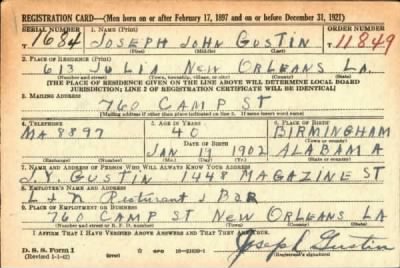 REGISTRATION CARD—(Men born on or after February 17, 1897 and on or before December 31, 1921)
SERIAL NUMBER 1. NAME (Print) ORDER NUMBER
T 1684 JOSEPH JOHN GUSTIN 11849
(First) (Middle) (Last)
2. PLACE OF RESIDENCE (Print)
613 JULIA NEW ORLEANS LA.
(Number and street) (Town, township, village, or city) (County) (State)
[THE PLACE OF RESIDENCE GIVEN ON THE LINE ABOVE WILL DETERMINE LOCAL BOARD
JURISDICTION; LINE 2 OF REGISTRATION CERTIFICATE WILL BE IDENTICAL]
3. MAILING ADDRESS
760 CAMP ST
[Mailing address if other than place indicated on line 2. If same insert word same]
4. TELEPHONE 5. AGE IN YEARS 6. PLACE OF BIRTH
MA 8897 40 BIRMINGHAM
DATE OF BIRTH (Town or county)
JAN 19 1902 ALABAMA
(Exchange) (Number) (Mo.) (Day) (Yr.) (State or country)
7. NAME AND ADDRESS OF PERSON WHO WILL ALWAYS KNOW YOUR ADDRESS
J. Y. GUSTIN 1448 MAGAZINE ST
8. EMPLOYER'S NAME AND ADDRESS
L + N Resturant & BAR
9. PLACE OF EMPLOYMENT OR BUSINESS
760 CAMP ST NEW ORLEANS LA
(Number and street or R. F. D. number) (Town) (County) (State)
I AFFIRM THAT I HAVE VERIFIED ABOVE ANSWERS AND THAT THEY ARE TRUE.
D. S. S. Form 1 GPO 16-21630-1
(Revised 1-1-42) Joseph Gustin